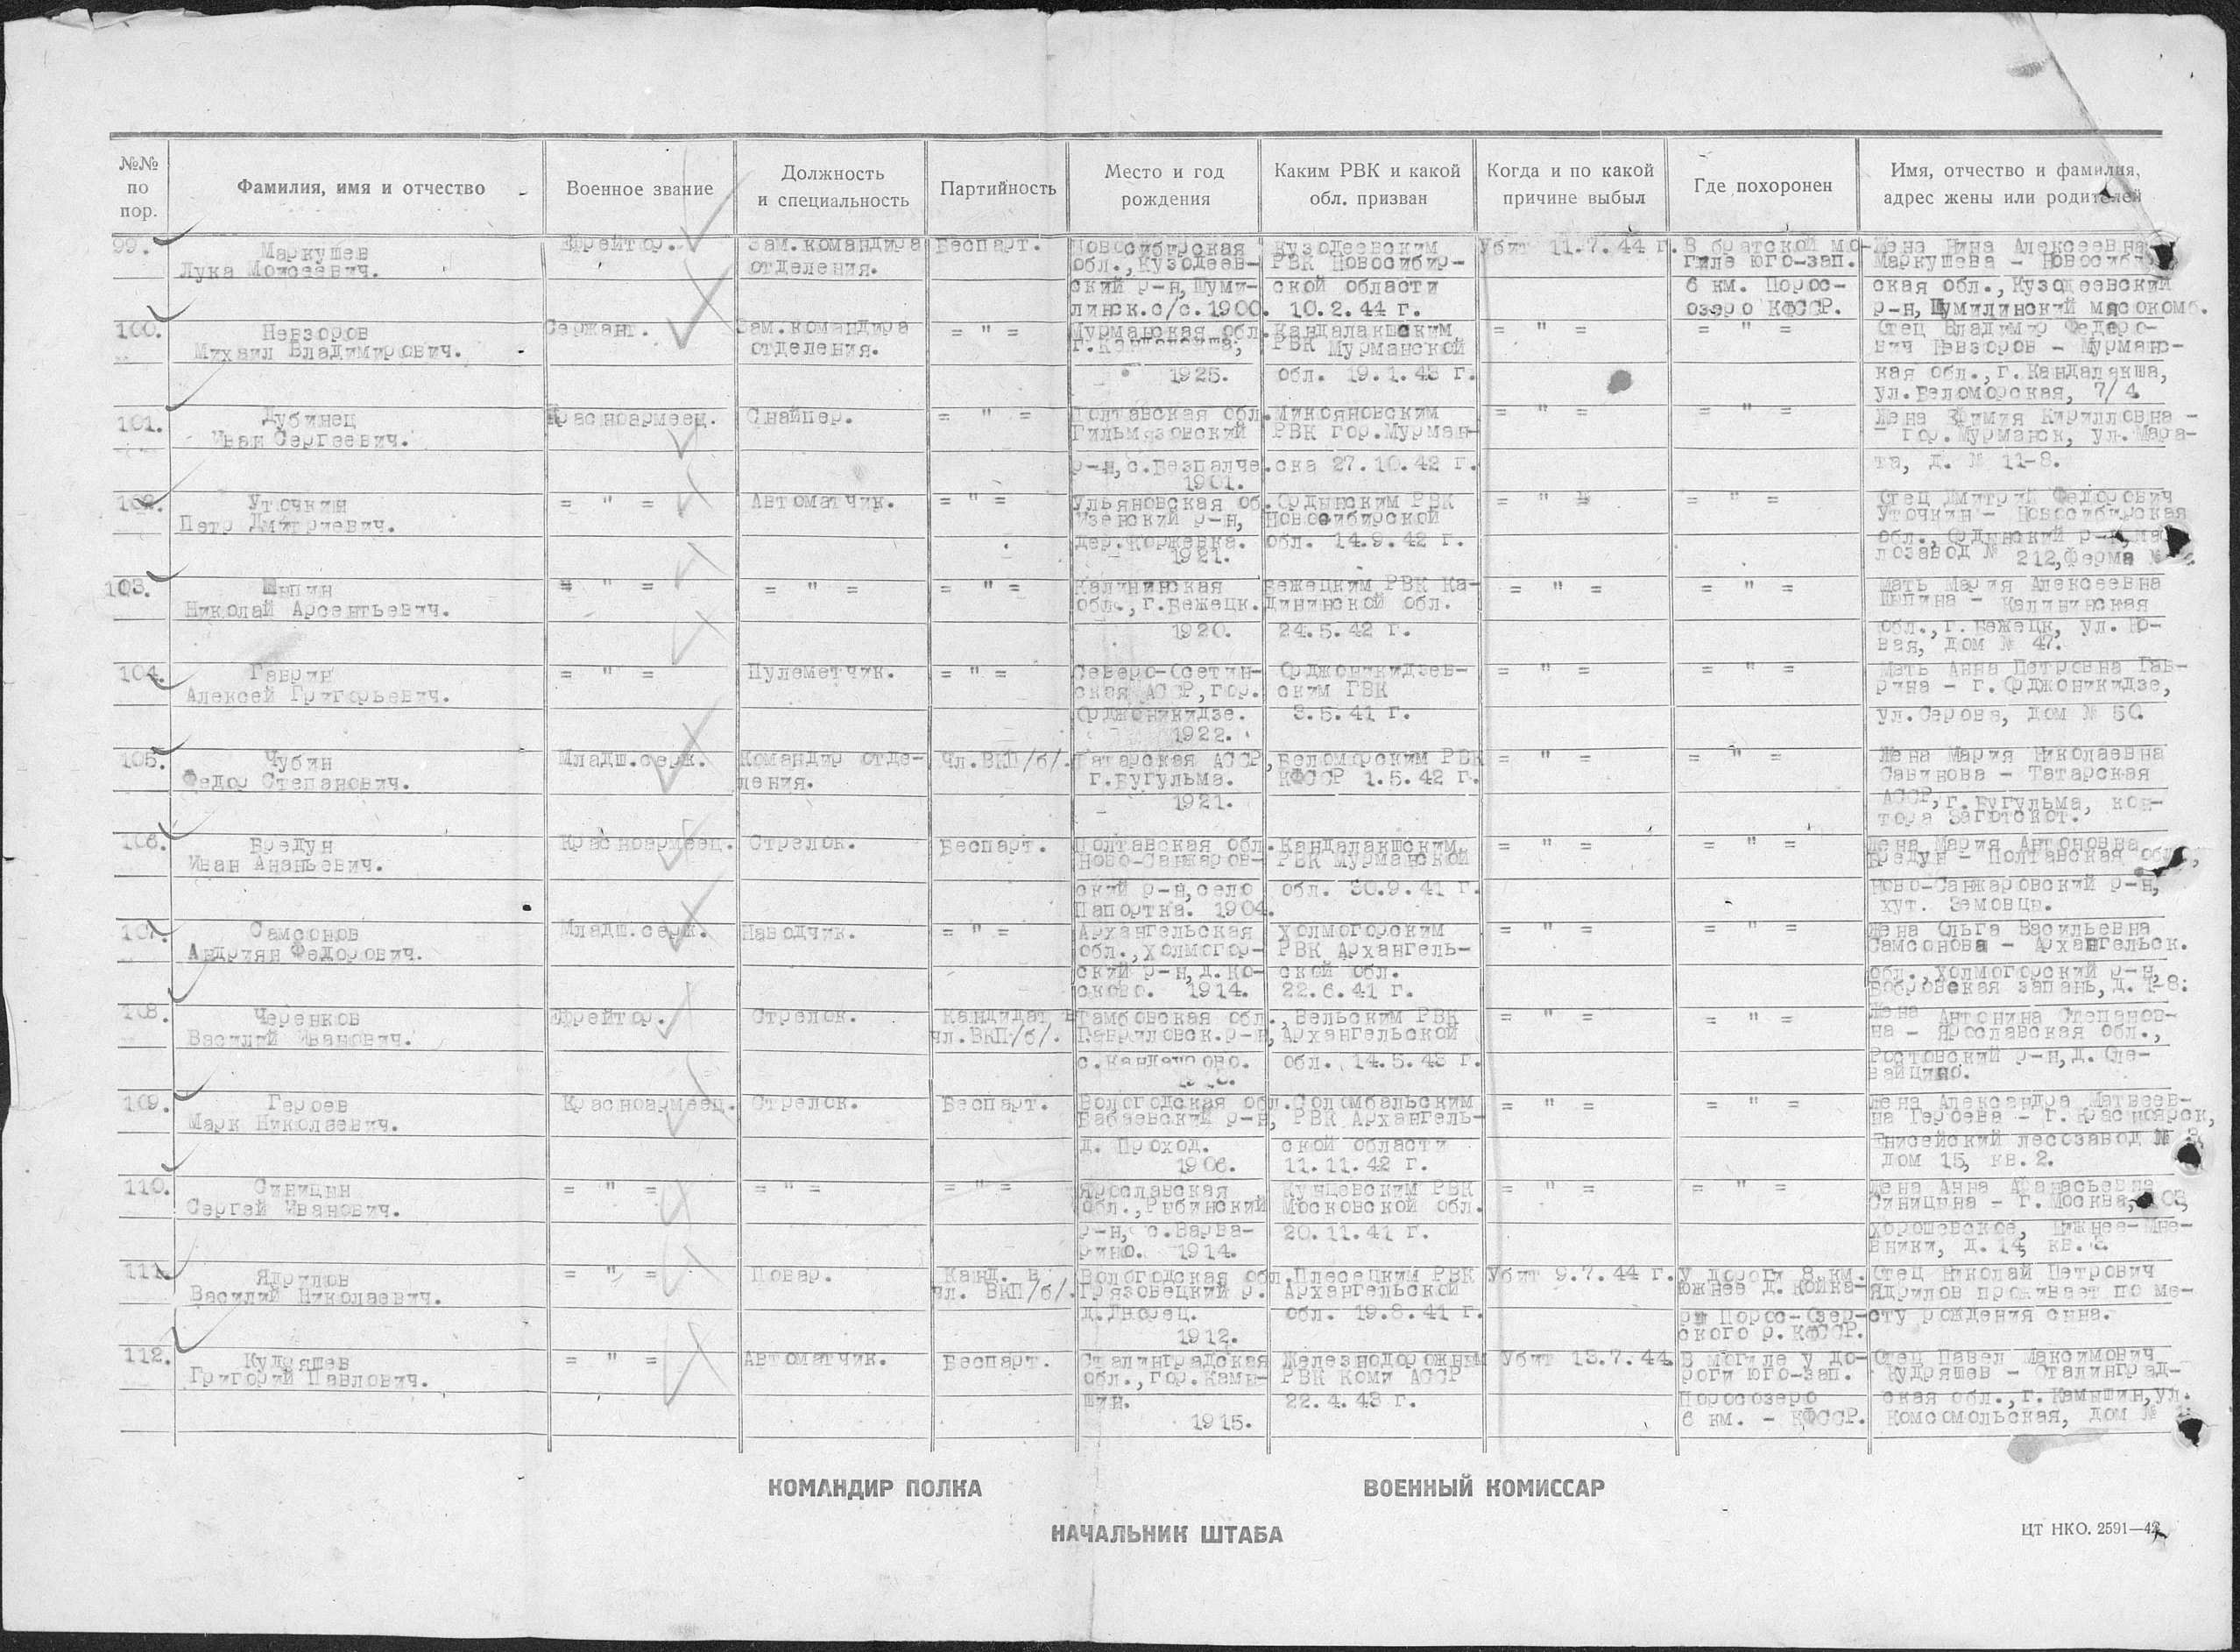 №№ по пор.
Фамилия, имя и отчество
Военное звание
Должность и специальность
Партийность
Место и год рождения
Каким РВК и какой обл. призван
Когда и по какой причине выбыл
Где похоронен
Имя, отчество и фамилия, адрес жены или родителей
99.
Маркушев
Лука Моисеевич.
Ефрейтор.
Зам.командира
отделения.
Беспарт.
Новосибирская
обл., Кузедеев-
ский р-н, Шуми-
линск.с/с. 1900.
Кузедеевским
РВК Новосибир-
ской области
10.2.44 г.
Убит 11.7.44 г.
В братской мо-
гиле юго-зап.
6 км. Порос-
озеро КФССР.
Жена Нина Алексеевна
Маркушева -
ская обл., Кузедеевский
р-н, Шумилинский мясокомб.
100.
Невзоров
Михаил Владимирович.
Сержант.
Зам.командира
отделения.
= " =
Мурманская обл.
г.Кандалакша,
1925.
Кандалакшским
РВК Мурманской
обл. 19.1.43 г.
= " =
= " =
Отец Владимир Федоро-
вич Невзоров - Мурманс-
кая обл., г.Кандалакша,
ул.Беломорская, 7/4.
101.
Дубинец
Иван Сергеевич.
Красноармеец.
Снайпер.
= " =
Полтавская обл.
Гильмязовский
р-н, с.Безпалче.
1901.
Микояновским
РВК гор.Мурман-
ска 27.10.42 г.
= " =
= " =
Жена Кирилловна -
гор.Мурманск, ул.Мара-
та, д. № 11-8.
102.
Уточкин
Петр Дмитриевич.
= " =
Автоматчик.
= " =
Ульяновская об.
р-н,
дер.Коржевка.
1921.
Ордынским РВК
Новосибирской
обл. 14.9.42 г.
= " =
= " =
Отец Дмитрий Федорович
Уточкин - Новосибирская
обл., Ордынский
лозавод № 212, ферма №
103.
Шыпин
Николай Арсентьевич.
= " =
= " =
= " =
Калининская
обл., г.Бежецк.
1920.
Бежецким РВК Ка-
лининской обл.
24.5.42 г.
= " =
= " =
Мать Мария Алексеевна
Шыпина - Калининская
обл., г. Бежецк, ул. Но-
вая, дом № 47.
104.
Гаврин
Алексей Григорьевич.
= " =
Пулеметчик.
= " =
Северо-Осетин-
ская АССР, гор.
Орджоникидзе.
1922.
Орджоникидзев-
ским ГВК
3.5.41 г.
= " =
= " =
Мать Анна Петровна Гав-
рина - г.Орджоникидзе,
ул.Серова, дом № 50.
105.
Чубин
Федор Степанович.
Младш.серж.
Командир отде-
ления.
Чл.ВКП/б/.
Татарская АССР,
г.Бугульма.
1921.
Беломорским РВК
КФССР 1.5.42 г.
= " =
= " =
Жена Мария Николаевна
Савинова - Татарская
АССР, г.Бугульма, кон-
тора Заготскот.
106.
Бредун
Иван Ананьевич.
Красноармеец.
Стрелок.
Беспарт.
Полтавская обл.
Ново-Санжаров-
ский р-н, село
Папортка. 1904.
Кандалакшским
РВК Мурманской
обл. 30.9.41 г.
= " =
= " =
Жена Мария Антоновна
Бредун - Полтавская
Ново-Санжаровский р-н,
хут. Земовцы.
107.
Самсонов
Андриян Федорович.
Младш.серж.
Наводчик.
= " =
Архангельская
обл., Холмогор-
ский р-н, д.Но-
сково. 1914.
Холмогорским
РВК Архангель-
ской обл.
22.6.41 г.
= " =
= " =
Жена Ольга Васильевна
Самсонова - Архангельск.
обл., Холмогорский р-н,
Бобровская запань, д. 1-8.
108.
Черенков
Василий Иванович.
Ефрейтор.
Стрелок.
Кандидат в
чл.ВКП/б/.
Тамбовская обл.
Гавриловск.р-н,
Вельским РВК
Архангельской
обл. 14.5.43 г.
= " =
= " =
Жена Антонина Степанов-
на - Ярославская обл.,
Ростовский р-н, д.
109.
Героев
Марк Николаевич.
Красноармеец.
Стрелок.
Беспарт.
Вологодская обл.
Бабаевский р-н,
д. Проход.
1906.
Соломбальским
РВК Архангель-
ской области
11.11.42 г.
= " =
= " =
Жена Александра Матвеев-
на Героева - г.Красноярск,
Енисейский лесозавод №
дом 15, кв. 2.
110.
Синицын
Сергей Иванович.
= " =
= " =
= " =
Ярославская
обл., Рыбинский
р-н, с.Варва-
рино. 1914.
Кунцевским РВК
Московской обл.
20.11.41 г.
= " =
= " =
Жена Анна Афанасьевна
Синицына - г.Москва,
Хорошевское, Нижнее-Мне-
вники, д. 14, кв.
111.
Ядрилов
Василий Николаевич.
= " =
Повар.
Канд. в
чл. ВКП/б/.
Вологодская обл.
Грязовецкий р.
д.Дворец.
1912.
Плесецким РВК
Архангельской
обл. 19.8.41 г.
Убит 9.7.44 г.
У дороги 8 км.
южнее д. Койка-
ры Порос-Озер-
ского р. КФССР.
Отец Николай Петрович
Ядрилов проживает по ме-
сту рождения сына.
112.
Кудряшев
Григорий Павлович.
= " =
Автоматчик.
Беспарт.
Сталинградская
обл., гор.Камы-
шин.
1915.
Железнодорожным
РВК Коми АССР
22.4.43 г.
Убит 13.7.44
В могиле у до-
роги юго-зап.
Поросозеро
6 км. - КФССР.
Отец Павел Максимович
Кудряшев - Сталинград-
ская обл., г.Камышин, ул.
Комсомольская, дом №
КОМАНДИР ПОЛКА
ВОЕННЫЙ КОМИССАР
НАЧАЛЬНИК ШТАБА
ЦТ НКО. 2591—42